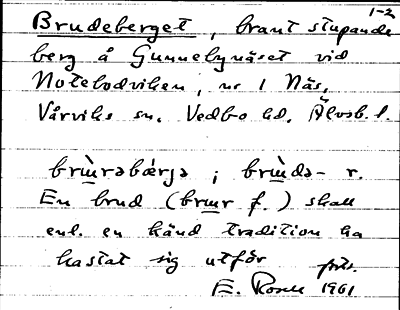 1-2
Brudeberget, brant stupande
berg å Gunnebynäset vid
Notebodviken, nr 1 Näs,
Vårviks sn. Vedbo hd. Älvsb. l.
brɯ̀rəbǽrjə ; brɯ̀də- r.
En brud (brɯr f.) skall
enl. en känd tradition ha
kastat sig utför
forts.
E. Rosén 1961